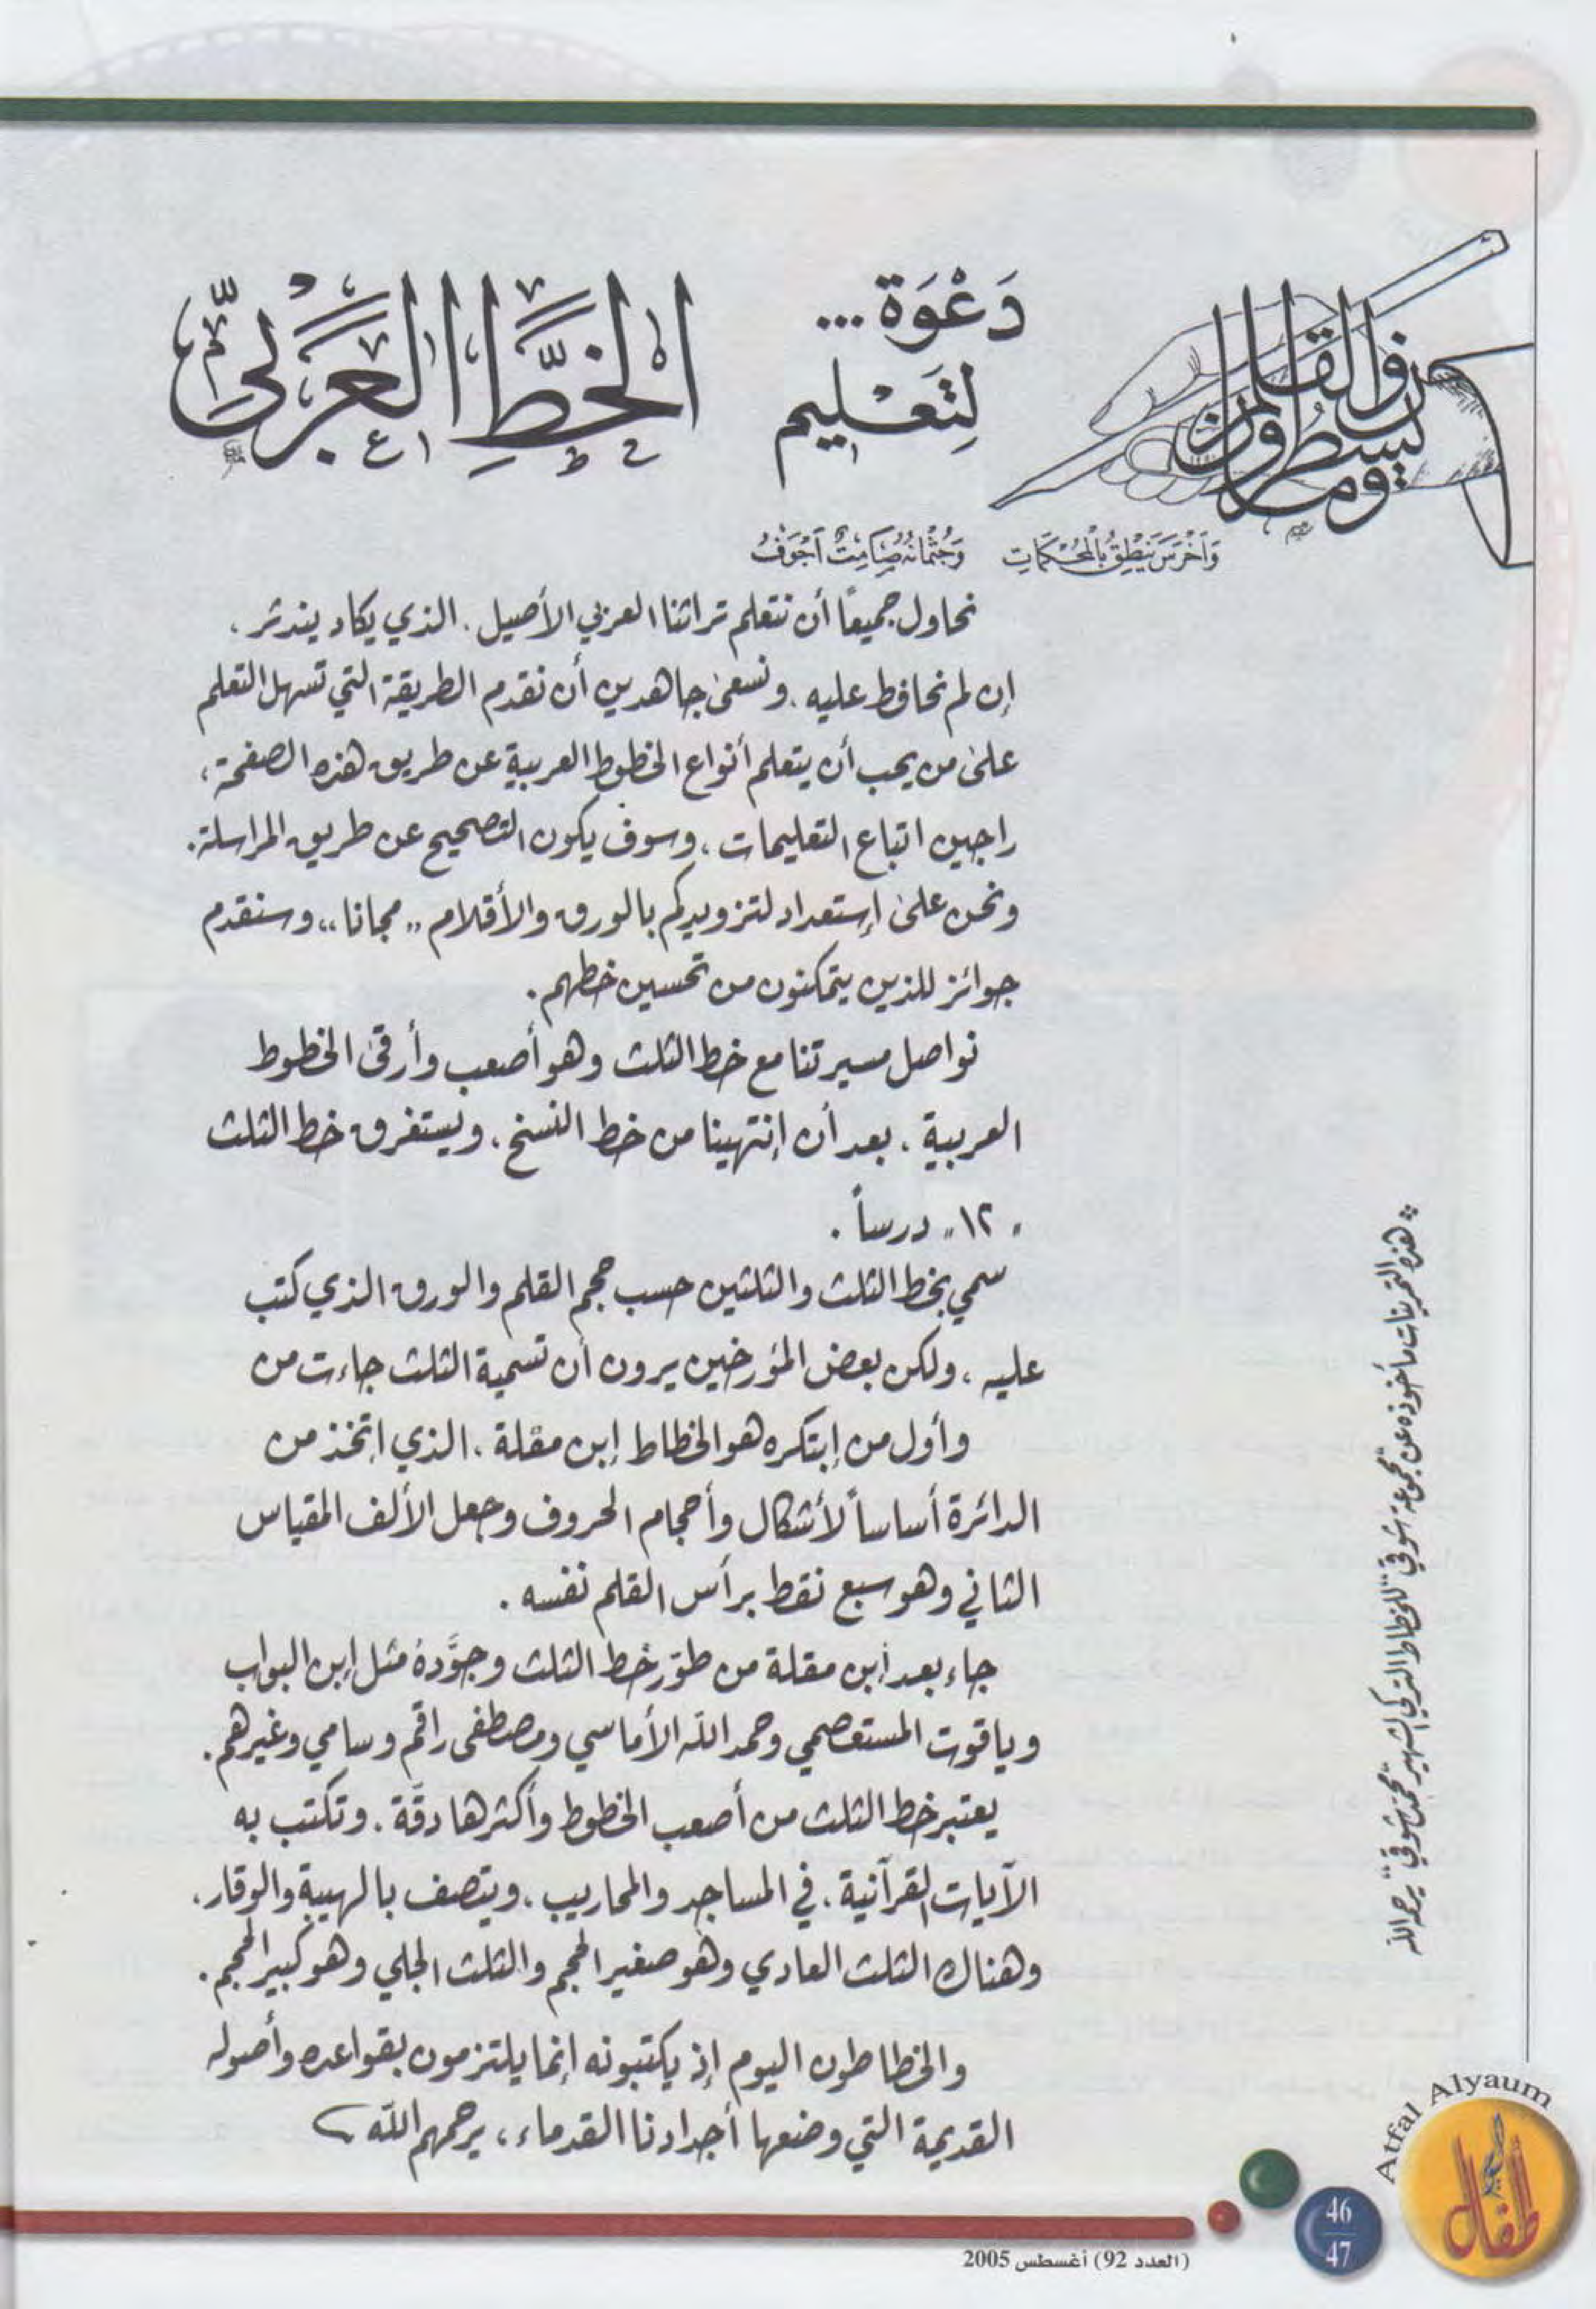 دَعْوَة ...
لِتَعْليم
الخَطِّ العَرَبيِّ
ن والقلم وما يسطرون
وَأَخْرَسَ يَنْطِقُ بِالْمُحْكَمَاتِ وَجُثْمَانُهُ صَامِتٌ أَجْوَفُ
نحاول جميعًا أن نتعلم تراثنا العربي الأصيل . الذي يكاد يندثر .
إن لم نحافظ عليه . ونسعى جاهدين أن نقدم الطريقة التي تسهل التعلم
على من يحب أن يتعلم أنواع الخطوط العربية عن طريق هذه الصفحة ،
راجين اتباع التعليمات ، وسوف يكون التصحيح عن طريق المراسلة .
ونحن على إستعداد لتزويدكم بالورق والأقلام ,, مجانا ,, وسنقدم
جوائز للذين يتمكنون من تحسين خطهم .
نواصل مسيرتنا مع خط الثلث وهو أصعب وأرقى الخطوط
العربية . بعد أن إنتهينا من خط النسخ . ويستغرق خط الثلث
" ١٢ " درساً .
سمي بخط الثلث والثلثين حسب حجم القلم والورق الذي كتب
عليه ، ولكن بعض المؤرخين يرون أن تسمية الثلث جاءت من
وأول من إبتكره هو الخطاط إبن مقلة . الذي اتخذ من
الدائرة أساساً لأشكال وأحجام الحروف وجعل الألف المقياس
الثاني وهو سبع نقط برأس القلم نفسه .
جاء بعد إبن مقلة من طوّر خط الثلث وجوَّده مثل إبن البواب
وياقوت المستعصمي وحمد الله الأماسي ومصطفى راقم وسامي وغيرهم .
يعتبر خط الثلث من أصعب الخطوط وأكثرها دقّة . وتكتب به
الآيات القرآنية . في المساجد والمحاريب . ويتصف بالهيبة والوقار .
وهناك الثلث العادي وهو صغير الحجم والثلث الجلي وهو كبير الحجم .
والخطاطون اليوم إذ يكتبونه إنما يلتزمون بقواعده وأصوله
القديمة التي وضعها أجدادنا القدماء ، يرحمهم الله
* هذه التمرينات مأخوذه عن "مجموعة شوقي" للخطاط التركي الشهير "محمد شوقي" يرحمه الله
Atfal Alyaum
أطفال
46
47
(العدد 92) أغسطس 2005